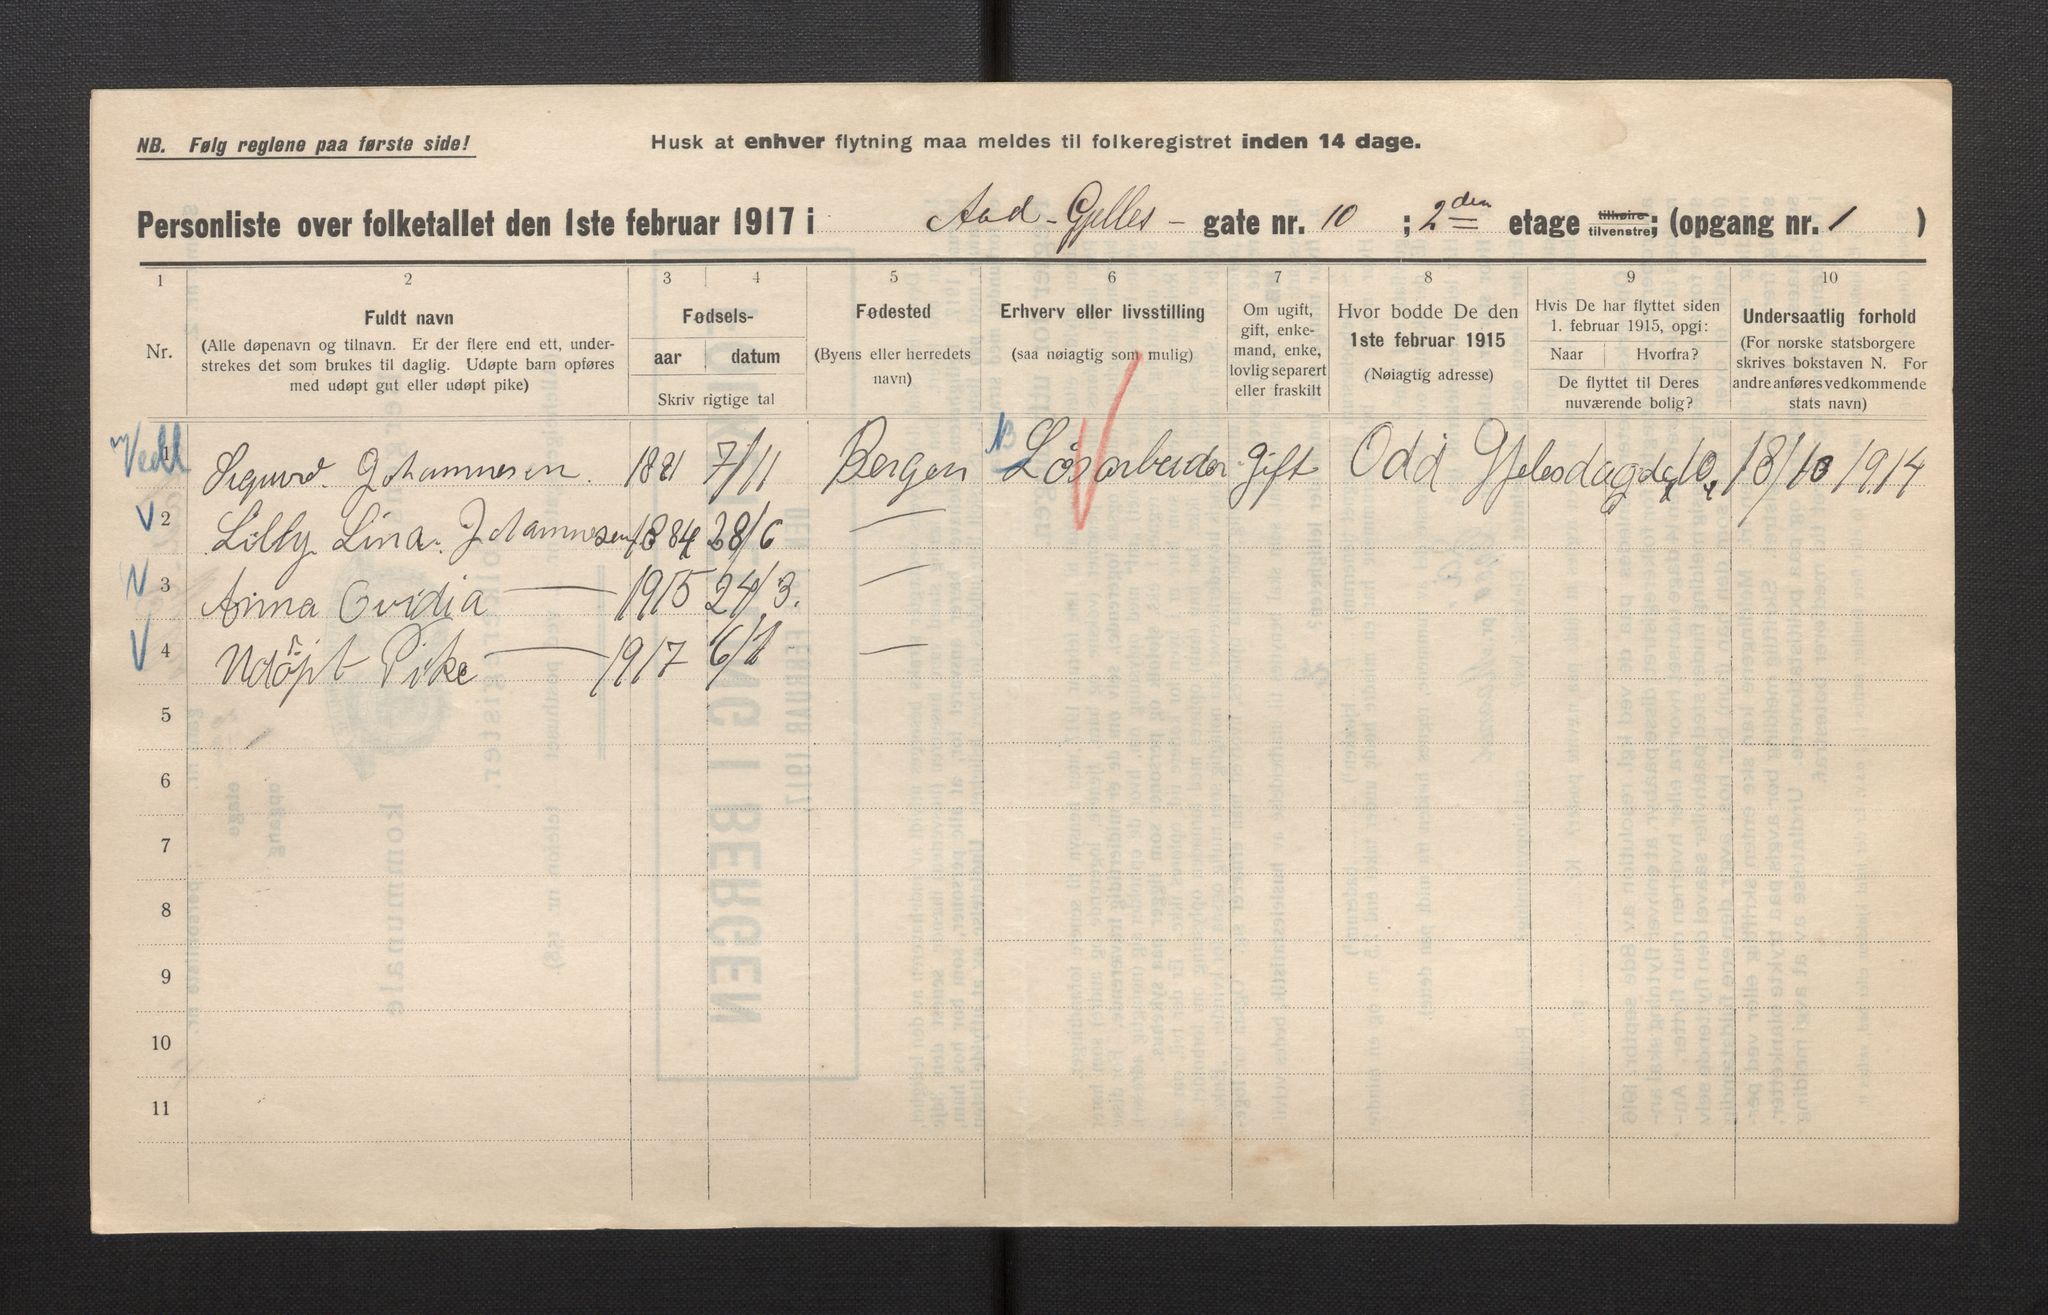 NB. Følg reglene paa første side!
Husk at enhver flytning maa meldes til folkeregistret inden 14 dage.
Personliste over folketallet den 1ste februar 1917 i Aad-Gjelles- gate nr. 10 ; 2den etage tilhøire tilvenstre; (opgang nr. 1 )
1 2 3 4 5 6 7 8 9 10
Nr.
Fuldt navn
(Alle døpenavn og tilnavn. Er der flere end ett, under-
strekes det som brukes til daglig. Udøpte barn opføres
med udøpt gut eller udøpt pike)
Fødsels-
aar datum
Skriv rigtige tal
Fødested
(Byens eller herredets
navn)
Erhverv eller livsstilling
(saa nøiagtig som mulig)
Om ugift,
gift, enke-
mand, enke,
lovlig separert
eller fraskilt
Hvor bodde De den
1ste februar 1915
(Nøiagtig adresse)
Hvis De har flyttet siden
1. februar 1915, opgi:
Naar Hvorfra?
De flyttet til Deres
nuværende bolig?
Undersaatlig forhold
(For norske statsborgere
skrives bokstaven N. For
andre anføres vedkommende
stats navn)
1 Sigurd Johannesen. 1881 7/11 Bergen Løsarbeider gift Odd Gjelesdagde 10, 18/10 1914
2 Lilly Lina Johannesen 1884 28/6 —
3 Anna Ovidia — 1915 24/3. —
4 Udöpt Pike — 1917 6/1 —
5
6
7
8
9
10
11